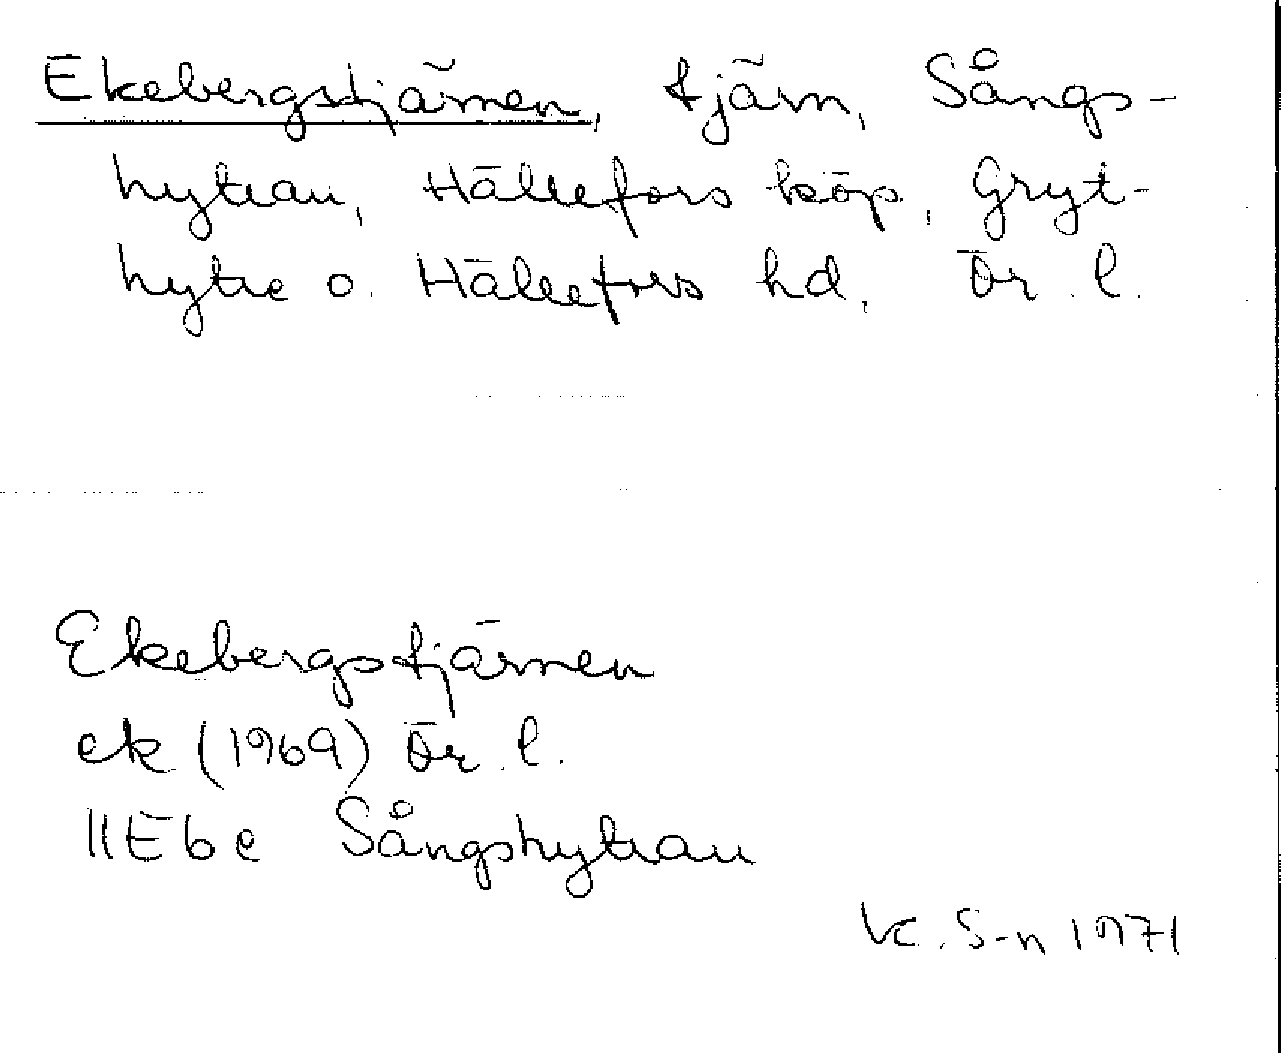 Ekebergstjärnen, tjärn, Sångs-
hyttan, Hällefors köp., Gryt-
hytte o. Hällefors hd, Ör. l.
Ekebergstjärnen
ek (1969) Ör. l.
11E6e Sångshyttan
K. S-n 1971